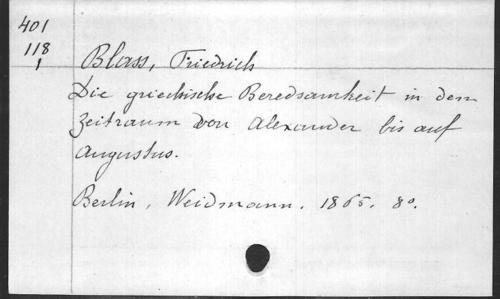 401
118
1
Blass, Friedrich
Die griechische Beredsamheit in dem
Zeitraum von Alexander bis auf
Augustus.
Berlin, Weidmann. 1865. 8°.